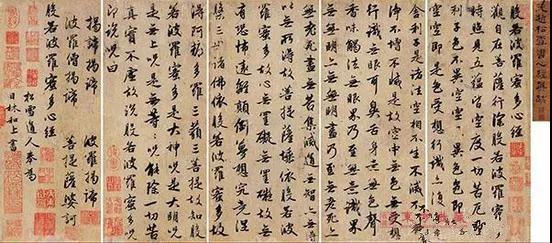 般若波羅蜜多心經
觀自在菩薩行深般若波羅蜜多
時照見五蘊皆空度一切苦厄舍
利子色不異空空不異色色即是
空空即是色受想行識亦復如是
舍利子是諸法空相不生不滅不垢
不淨不增不減是故空中無色無受想
行識無眼耳鼻舌身意無色聲
香味觸法無眼界乃至無意識界
無無明亦無無明盡乃至無老死亦
無老死盡無苦集滅道無智亦無得
以無所得故菩提薩埵依般若波
羅蜜多故心無罣礙無罣礙故無
有恐怖遠離顛倒夢想究竟涅
槃三世諸佛依般若波羅蜜多故
得阿耨多羅三藐三菩提故知般
若波羅蜜多是大神呪是大明呪
是無上呪是無等等呪能除一切苦
真實不虛故說般若波羅蜜多呪
即說呪曰
揭諦揭諦 波羅揭諦
波羅僧揭諦 菩提薩婆訶
般若波羅蜜多心經
松雪道人奉為
日林和上書